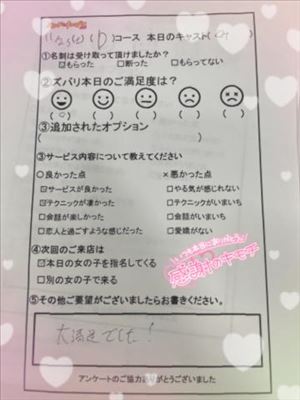 コース 本日のキャスト(
①名刺は受け取って頂けましたか？
☑もらった □断った □もらってない
②ズバリ本日のご満足度は？
(○) ( ) ( ) ( ) ( )
③追加されたオプション
( )
③サービス内容について教えてください
○良かった点 ×悪かった点
☑サービスが良かった □やる気が感じれない
☑テクニックが凄かった □テクニックがいまいち
□会話が楽しかった □会話がいまいち
□恋人と過ごすような感じだった □愛嬌がない
④次回のご来店は
☑本日の女の子を指名してくる
□別の女の子で来る
感謝のキモチ
⑤その他ご要望がございましたらお書きください。
大満足でした！
アンケートのご協力ありがとうございました